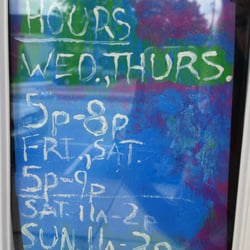 HOURS
WED., THURS.
5p-8p
FRI., SAT.
5p-9p
SAT 11A-2p
SUN 11A-2p